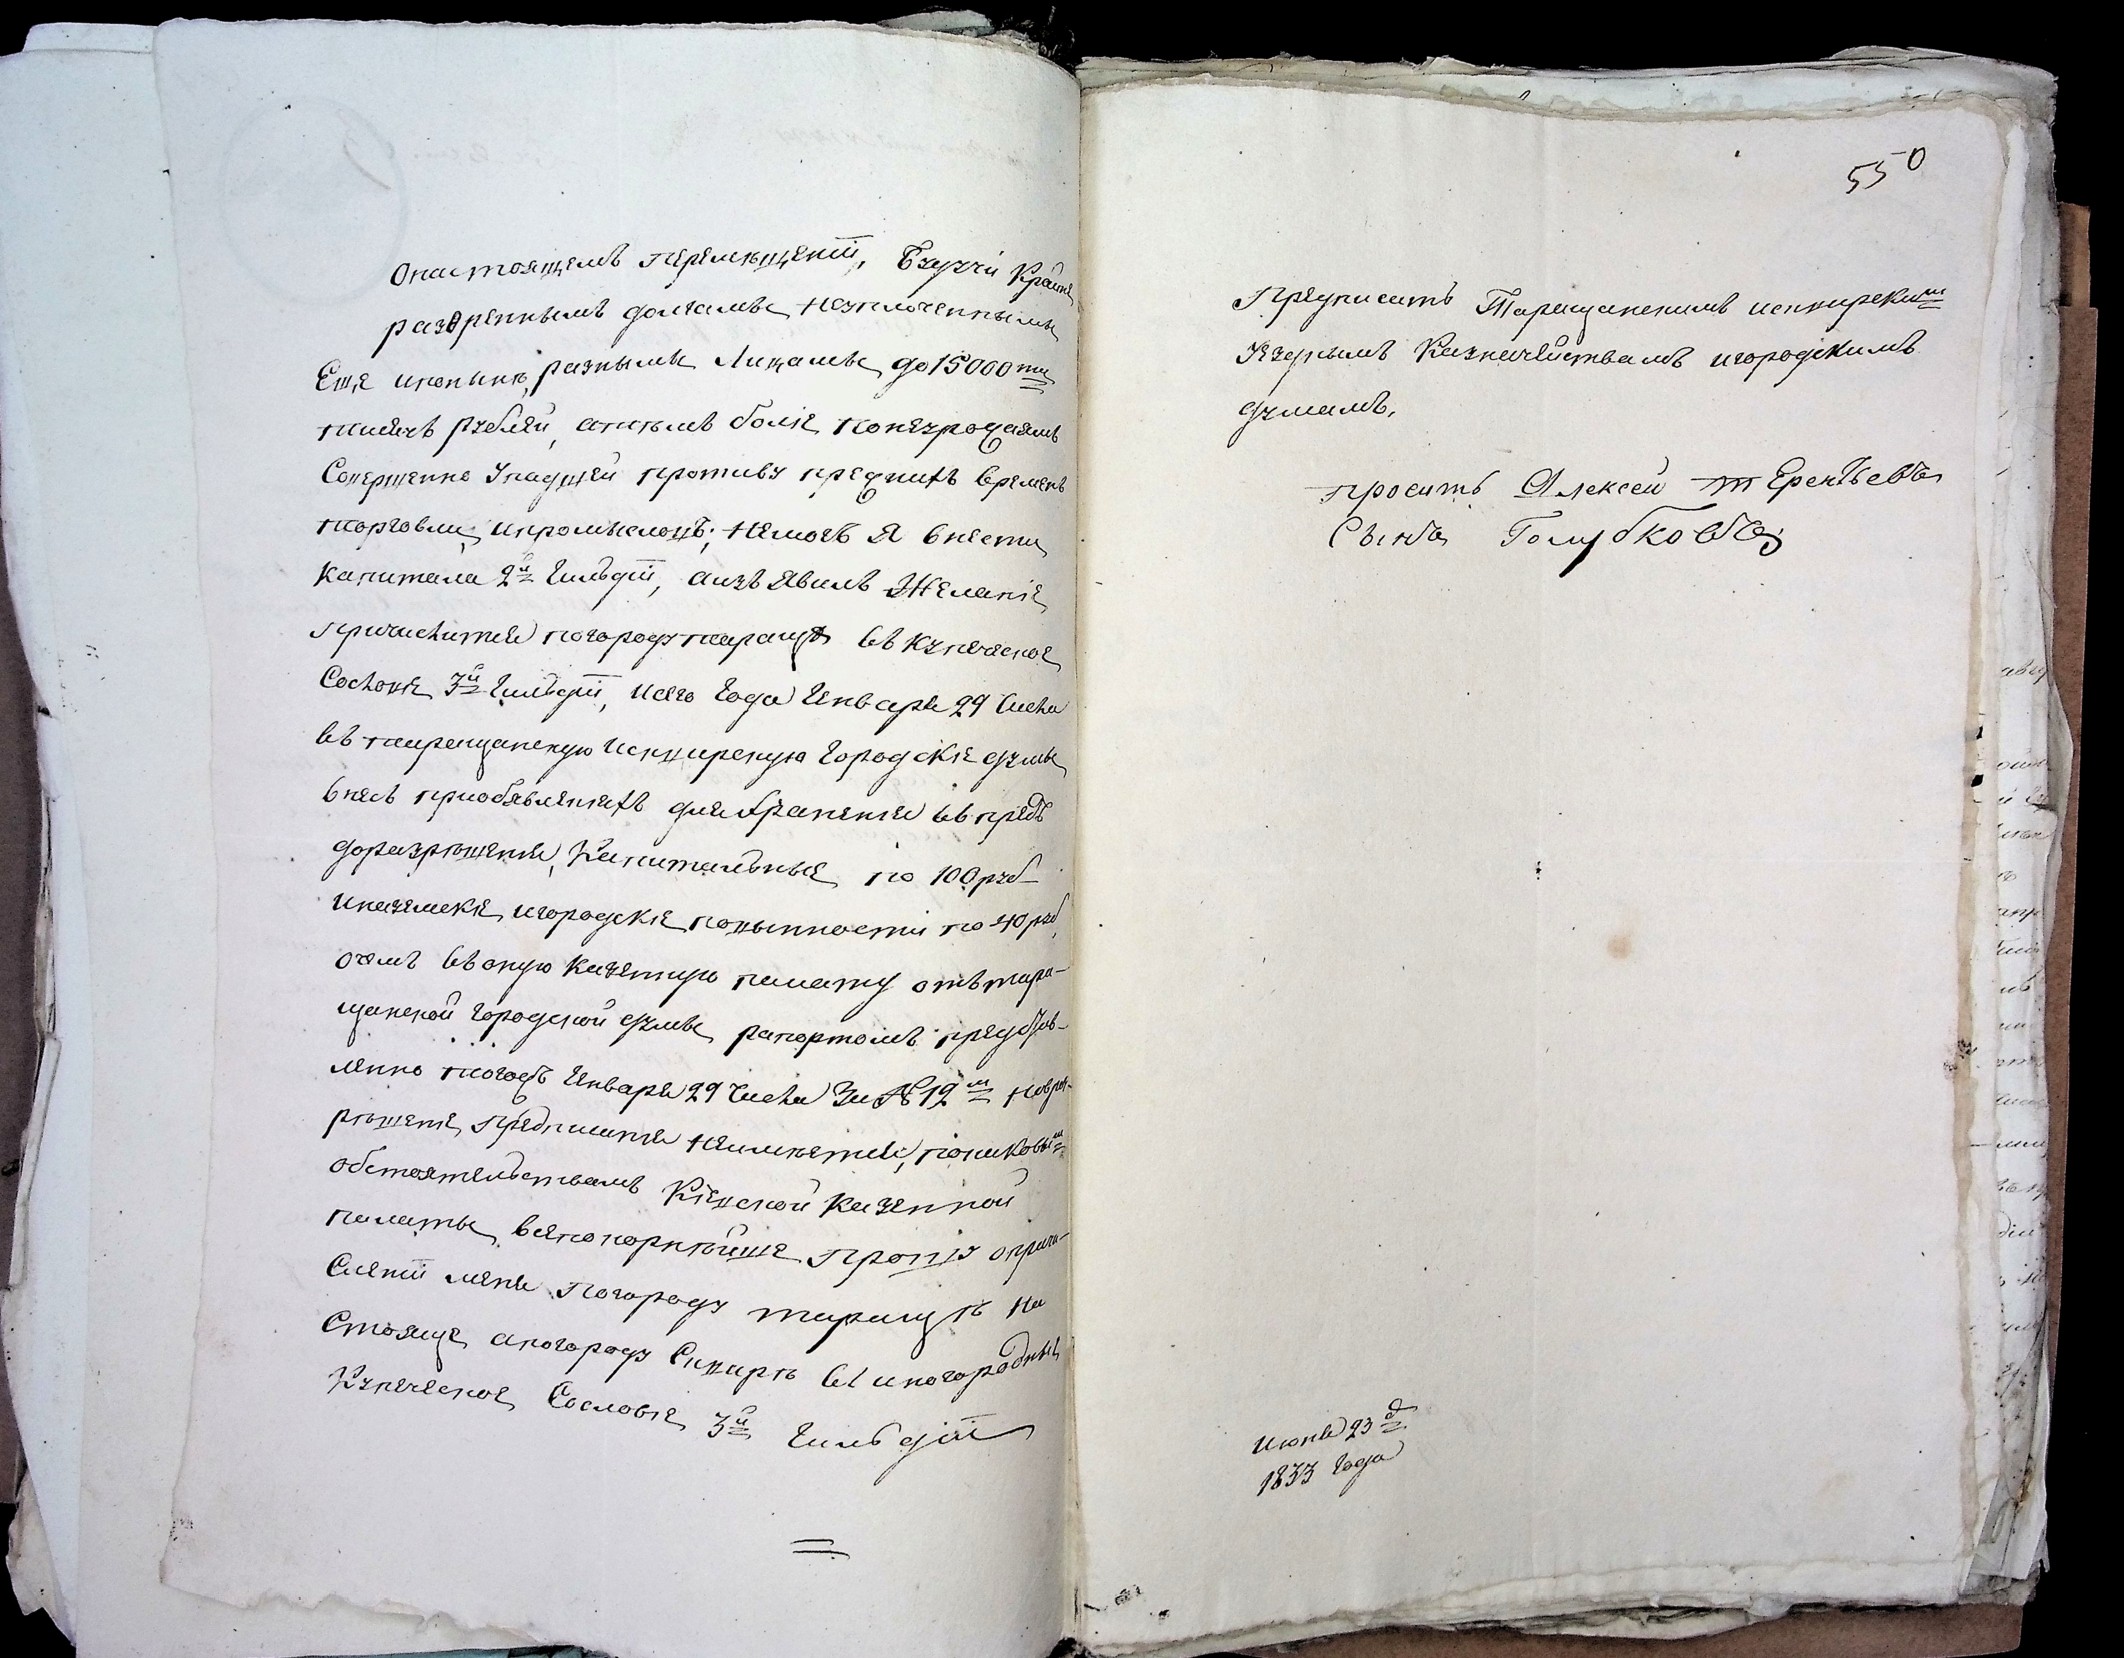 Онастоящемъ перемѣщенiи, Бзуччи Крайнѣ
разоренныемъ долгамы незплоченнымы
Еще ипонынѣ разнымы Лицамы до 15000 ти
тисячъ рублей, аптомъ более понезродаямъ
Совершенно Упадшей противу преднихъ времянъ
торговли ипромысловъ; немогъ я внести
капитала 2й Гильдiи, аизъявилъ Желанiе
причислится погороду тараще въ купеческое
Состоянiе 3й Гильдiи, исего Года Генваря 29 Числа
въ таращанскую исквирскую Городскiе думы
внесъ приобявленiяхъ дляхраненiя въ предъ
доразрѣшенiя, Капитальные по 100 руб
иназемскiе игородскiе повынности по 40 руб,
очемъ въ оную Казенную палату отъ тара-
щанской городской думы рапортомъ представ-
ленно тогожъ Генваря 29 Числа За № 12 м
рѣшенiе, предписанiя неимѣется, потаковым
обстоятельствамъ Кiевской Казенной
палаты всепокорнѣйше прошу опричи-
сленiи меня погороду таращѣ на
Стояще апогороду Сквирѣ въ иногородные
Купеческое Сословiе 3й Гильдiи
550
Предписать Таращанскимъ исквирским
Уезднымъ Казначействамъ игородскимъ
думамъ.
проситъ Алексей терентьевъ
Сынъ Голубковъ
Июня 23 д
1833 Года